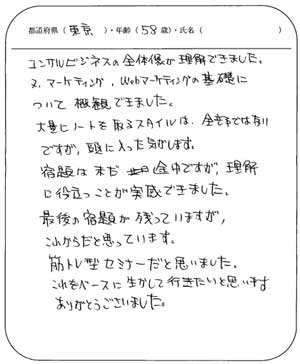 都道府県（東京）・年齢（58歳）・氏名（　　　）
コンサルビジネスの全体像が理解できました。
又、マーケティング、Webマーケティングの基礎に
ついて概観できました。
大量にノートを取るスタイルは、全部ではない
ですが、頭に入った気がします。
宿題は未だ途中ですが、理解
に役立つことが実感できました。
最後の宿題が残っていますが、
これからだと思っています。
筋トレ型セミナーだと思いました。
これをベースに生かして行きたいと思います
ありがとうございました。